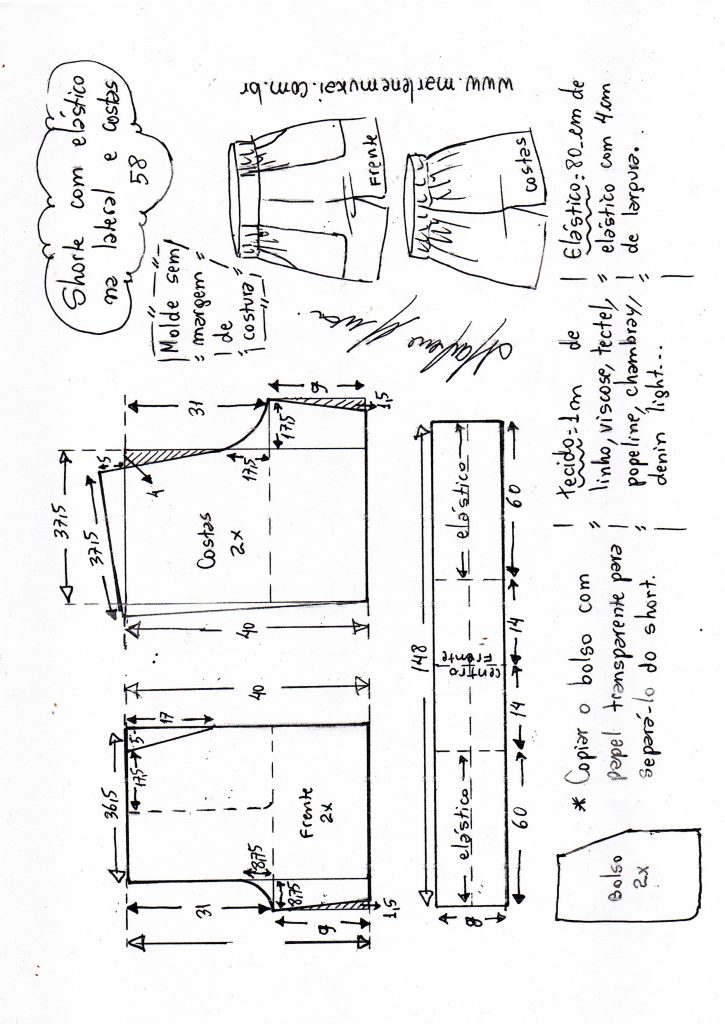 Shorte com elástico
na lateral e costas
58
www.marlenemukai.com.br
Molde sem
margem
de
costura
Frente
costas
36,5
17,5
5
17
40
Frente
2x
31
8,75
8,75
9
1,5
37,5
37,5
5
4
Costas
2x
40
31
17,5
17,5
9
1,5
148
elástico
centro
Frente
elástico
60
14
14
60
8
Bolso
2x
* Copiar o bolso com
papel transparente para
separá-lo do short.
Tecido=1m de
linho, viscose, tectel,
popeline, chambray,
denin light...
Elástico=80cm de
elástico com 4cm
de largura.